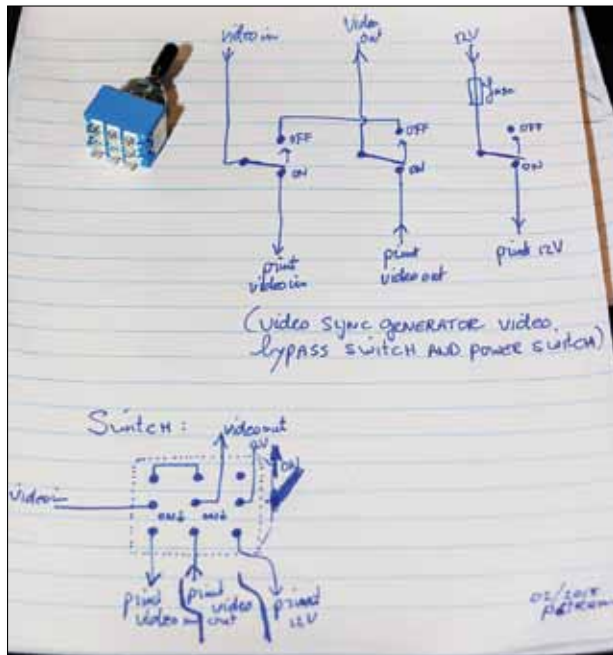 video in
Video out
12V
fuse
OFF
OFF
OFF
ON
ON
ON
print video in
print video out
print 12V
(Video SYNC GENERATOR VIDEO
bypass SWITCH AND POWER SWITCH)
SWITCH:
video out
ON
video in
ON↓ ON↓
print video in
print video out
print 12V
02/2015